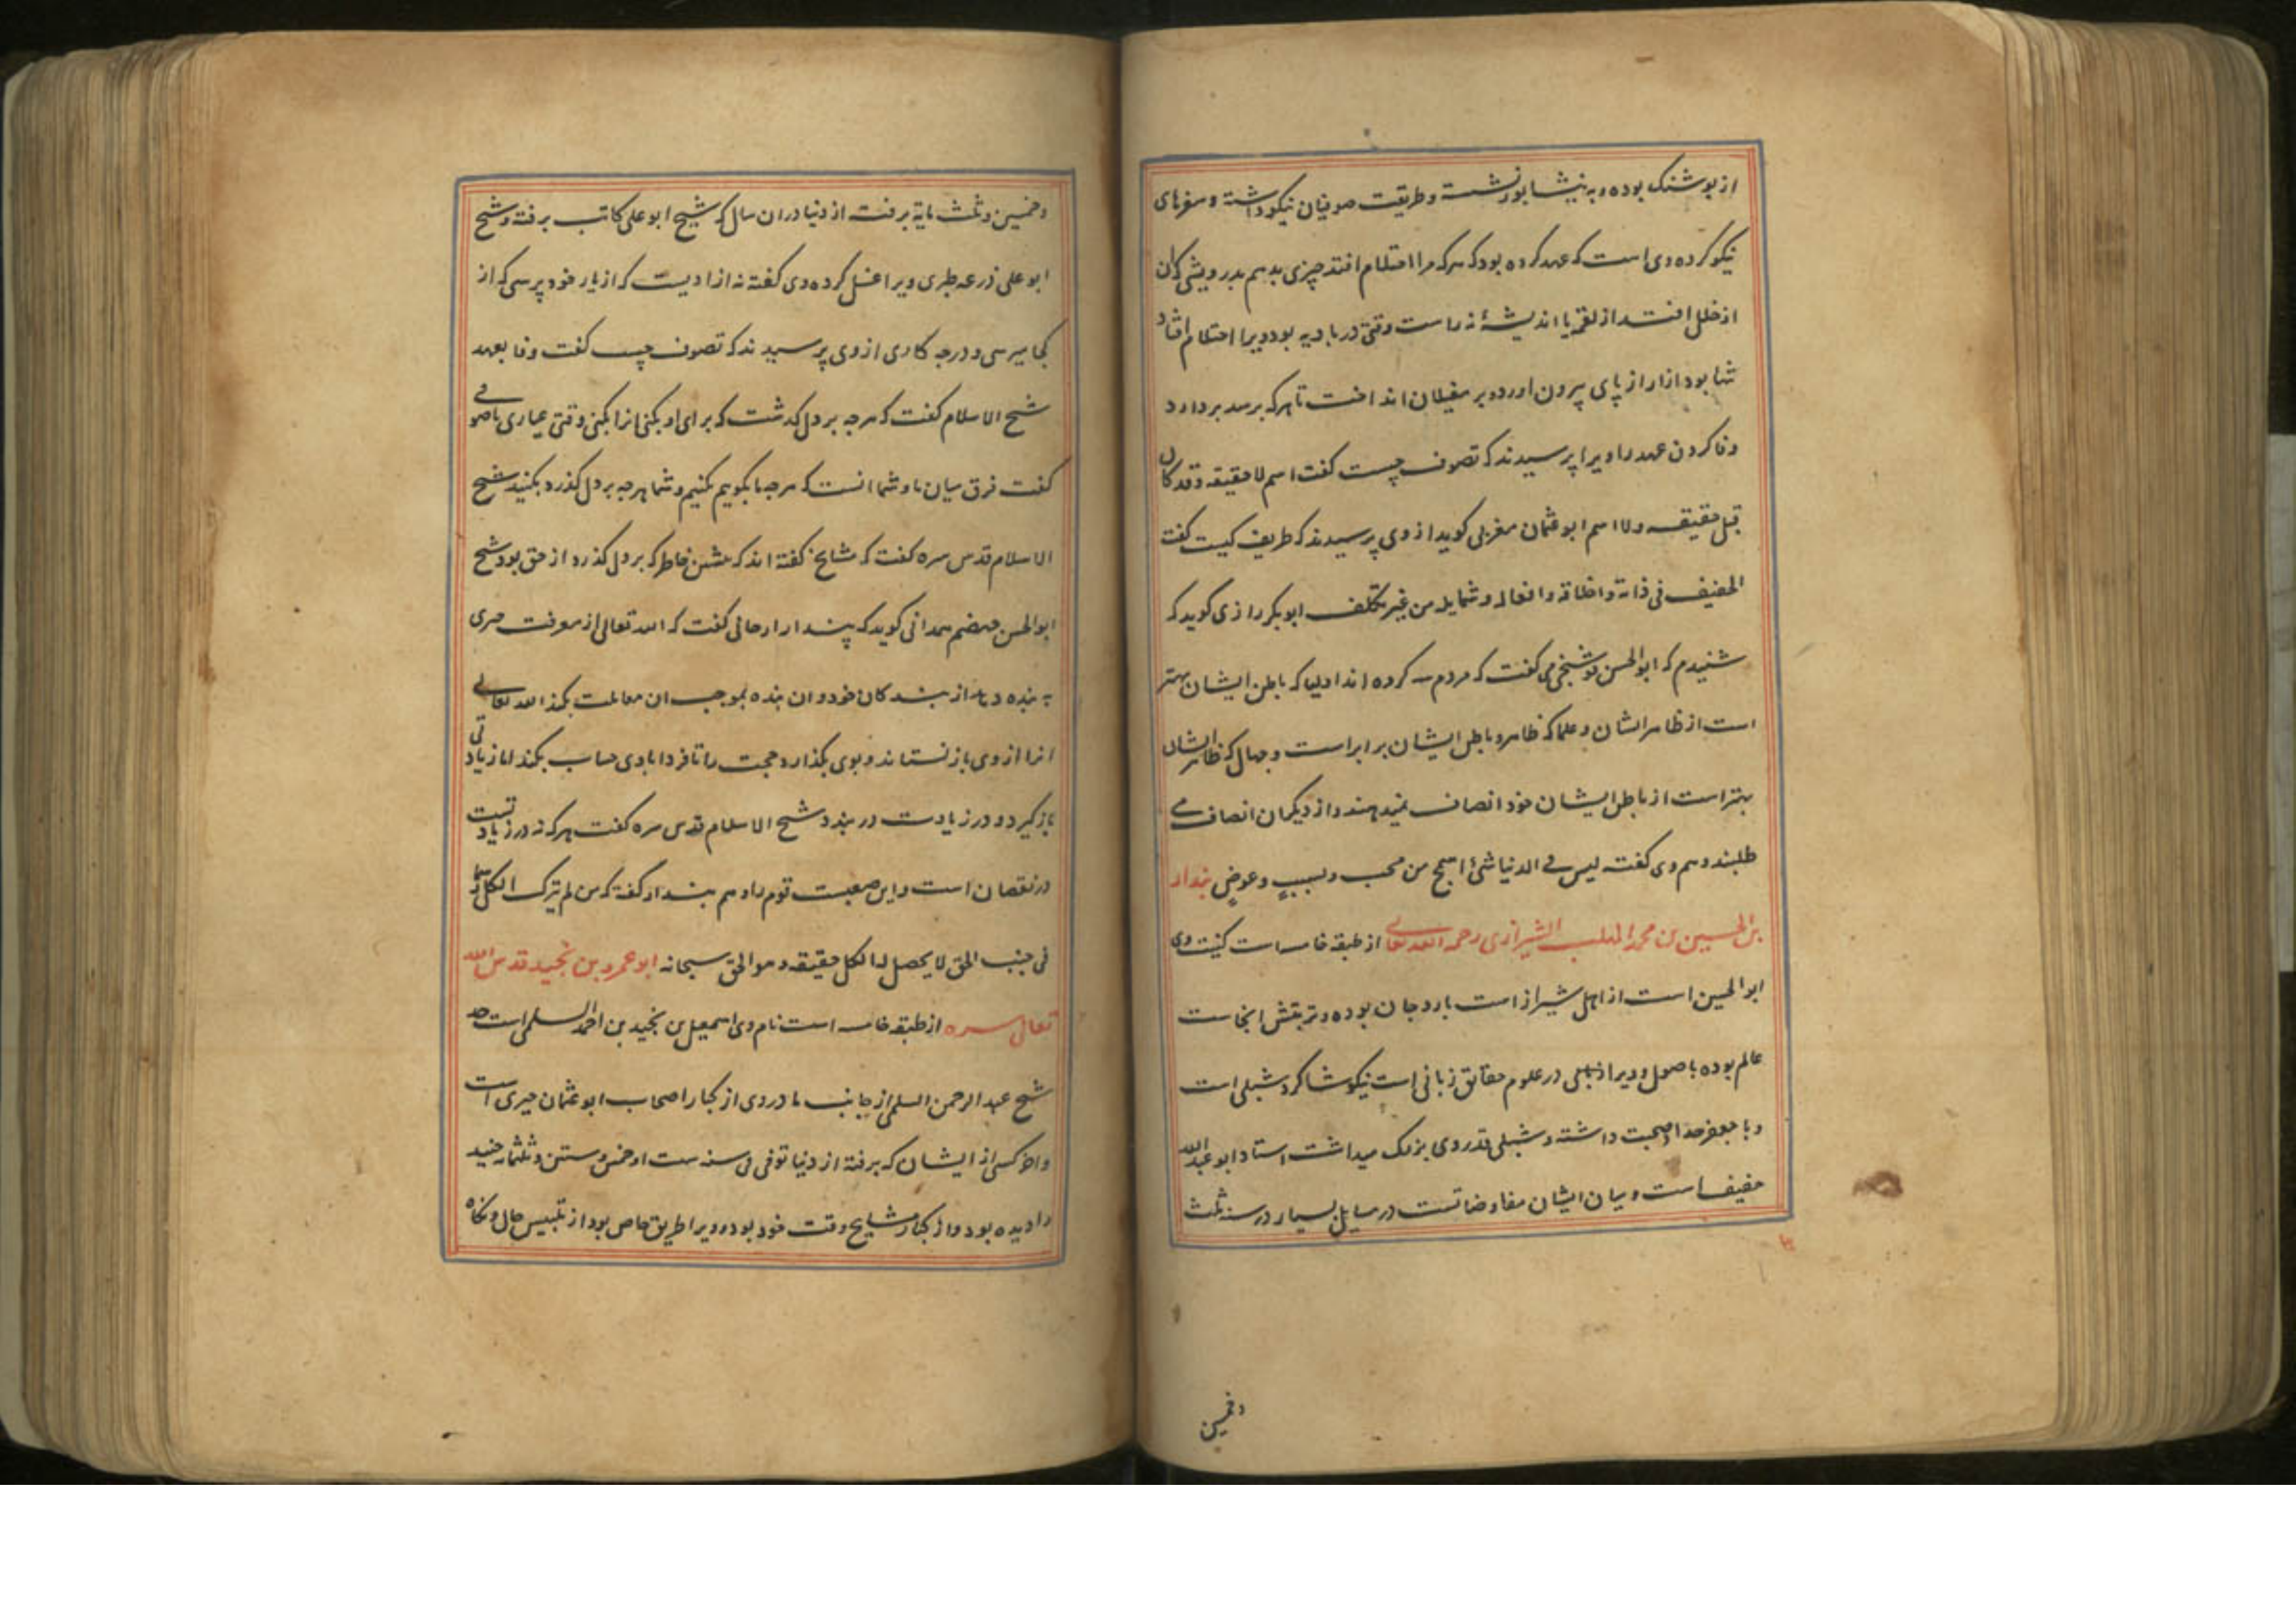 از بوشنک بوده و به نیشابور نشسته و طریقت صوفیان نیکو داشته و سفرهای
نیکو کرده وی است که عهد کرده بود که هر که مرا احتلام افتد چیزی بدهم بدرویشی کان
از خلل افتد از لقمه یا اندیشهٔ نه راست وقتی در بادیه بود ویرا احتلام افتاد
تنها بود ازار از پای بیرون اورد و بر مغیلان انداخت تا هر که برسد بردارد
وفا کردن عهد را ویرا پرسیدند که تصوف چیست کفت اسم لا حقیقه و قد کان
قبل حقیقه ولا اسم ابو عثمان مغربی کوید از وی پرسیدند که ظریف کیست کفت
الخفیف فی ذاته و اخلاقه و افعاله و شمایله من غیر تکلف ابوبکر رازی کوید که
شنیدم که ابوالحسن بوشنجی می کفت که مردم سه کروه اند اولیا که باطن ایشان بهتر
است از ظاهر ایشان و علما که ظاهر و باطن ایشان برابر است و جهال که ظاهر ایشان
بهتر است از باطن ایشان خود انصاف نمیدهند و از دیکران انصاف می
طلبند و هم وی کفته لیس فی الدنیا شئ اسمج من محب و لسبب و عوض بندار
بن الحسین بن محمد المهلب الشیرازی رحمه الله تعالی از طبقه خامسه است کنیت وی
ابو الحسین است از اهل شیراز است باردجان بوده و تربتش انجاست
عالم بوده باصول و ویرا در علوم حقایق زبانی است نیکو شاکرد شبلی است
و با جعفر حذا صحبت داشته و شبلی قدر وی بزرک میداشت استاد ابو عبدالله
خفیف است و میان ایشان مفاوضاتست در مسایل بسیار در سنه ثلث
وخمسین
وخمسین و ثلث مایة برفت از دنیا دران سال که شیخ ابو علی کاتب برفته و شیخ
ابو علی زرعه طبری ویرا غسل کرده وی کفته نه از ادبست که از یار خود پرسی که از
کجا میرسی و در چه کاری از وی پرسیدند که تصوف چیست کفت وفا بعهد
شیخ الاسلام کفت که هرچه بر دل کذشت که برای او بکنی انرا بکنی وقتی عیاری با صوفی
کفت فرق میان ما و شما انست که هرچه ما بکوییم بکنیم و شما هرچه بر دل کذرد بکنید شیخ
الاسلام قدس سره کفت که مشایخ کفته اند که خاطر که بر دل کذرد از حق بود شیخ
ابو الحسن جهضم همدانی کوید که پندار ارجانی کفت که الله تعالی از معرفت چیزی
به بنده دهد از بندکان خود و ان بنده بموجب ان معاملت نکند الله تعالی
انرا از وی باز نستاند و بوی بکذارد حجت را تا فردا با وی حساب بکند اما زیادتی
باز کیرد و در زیادت در بندد شیخ الاسلام قدس سره کفت هر که نه در زیادتست
در نقصان است و این صعبست قوم را و هم بندار کفته که من لم یترک الکل رسما
فی جنب الحق لا یحصل له الکل حقیقه و هو الحق سبحانه ابو عمرو بن نجید قدس الله
تعالی سره از طبقه خامسه است نام وی اسمعیل بن نجید بن احمد السلمی است جد
شیخ عبد الرحمن السلمی از جانب مادر وی از کبار اصحاب ابو عثمان حیری است
و اخر کسی از ایشان که برفته از دنیا توفی فی سنه ست او خمس و ستین و ثلثمایه جنید
را دیده بود و از کبار مشایخ وقت خود بوده و ویرا طریق خاص بود از تلبیس حال و نکاه